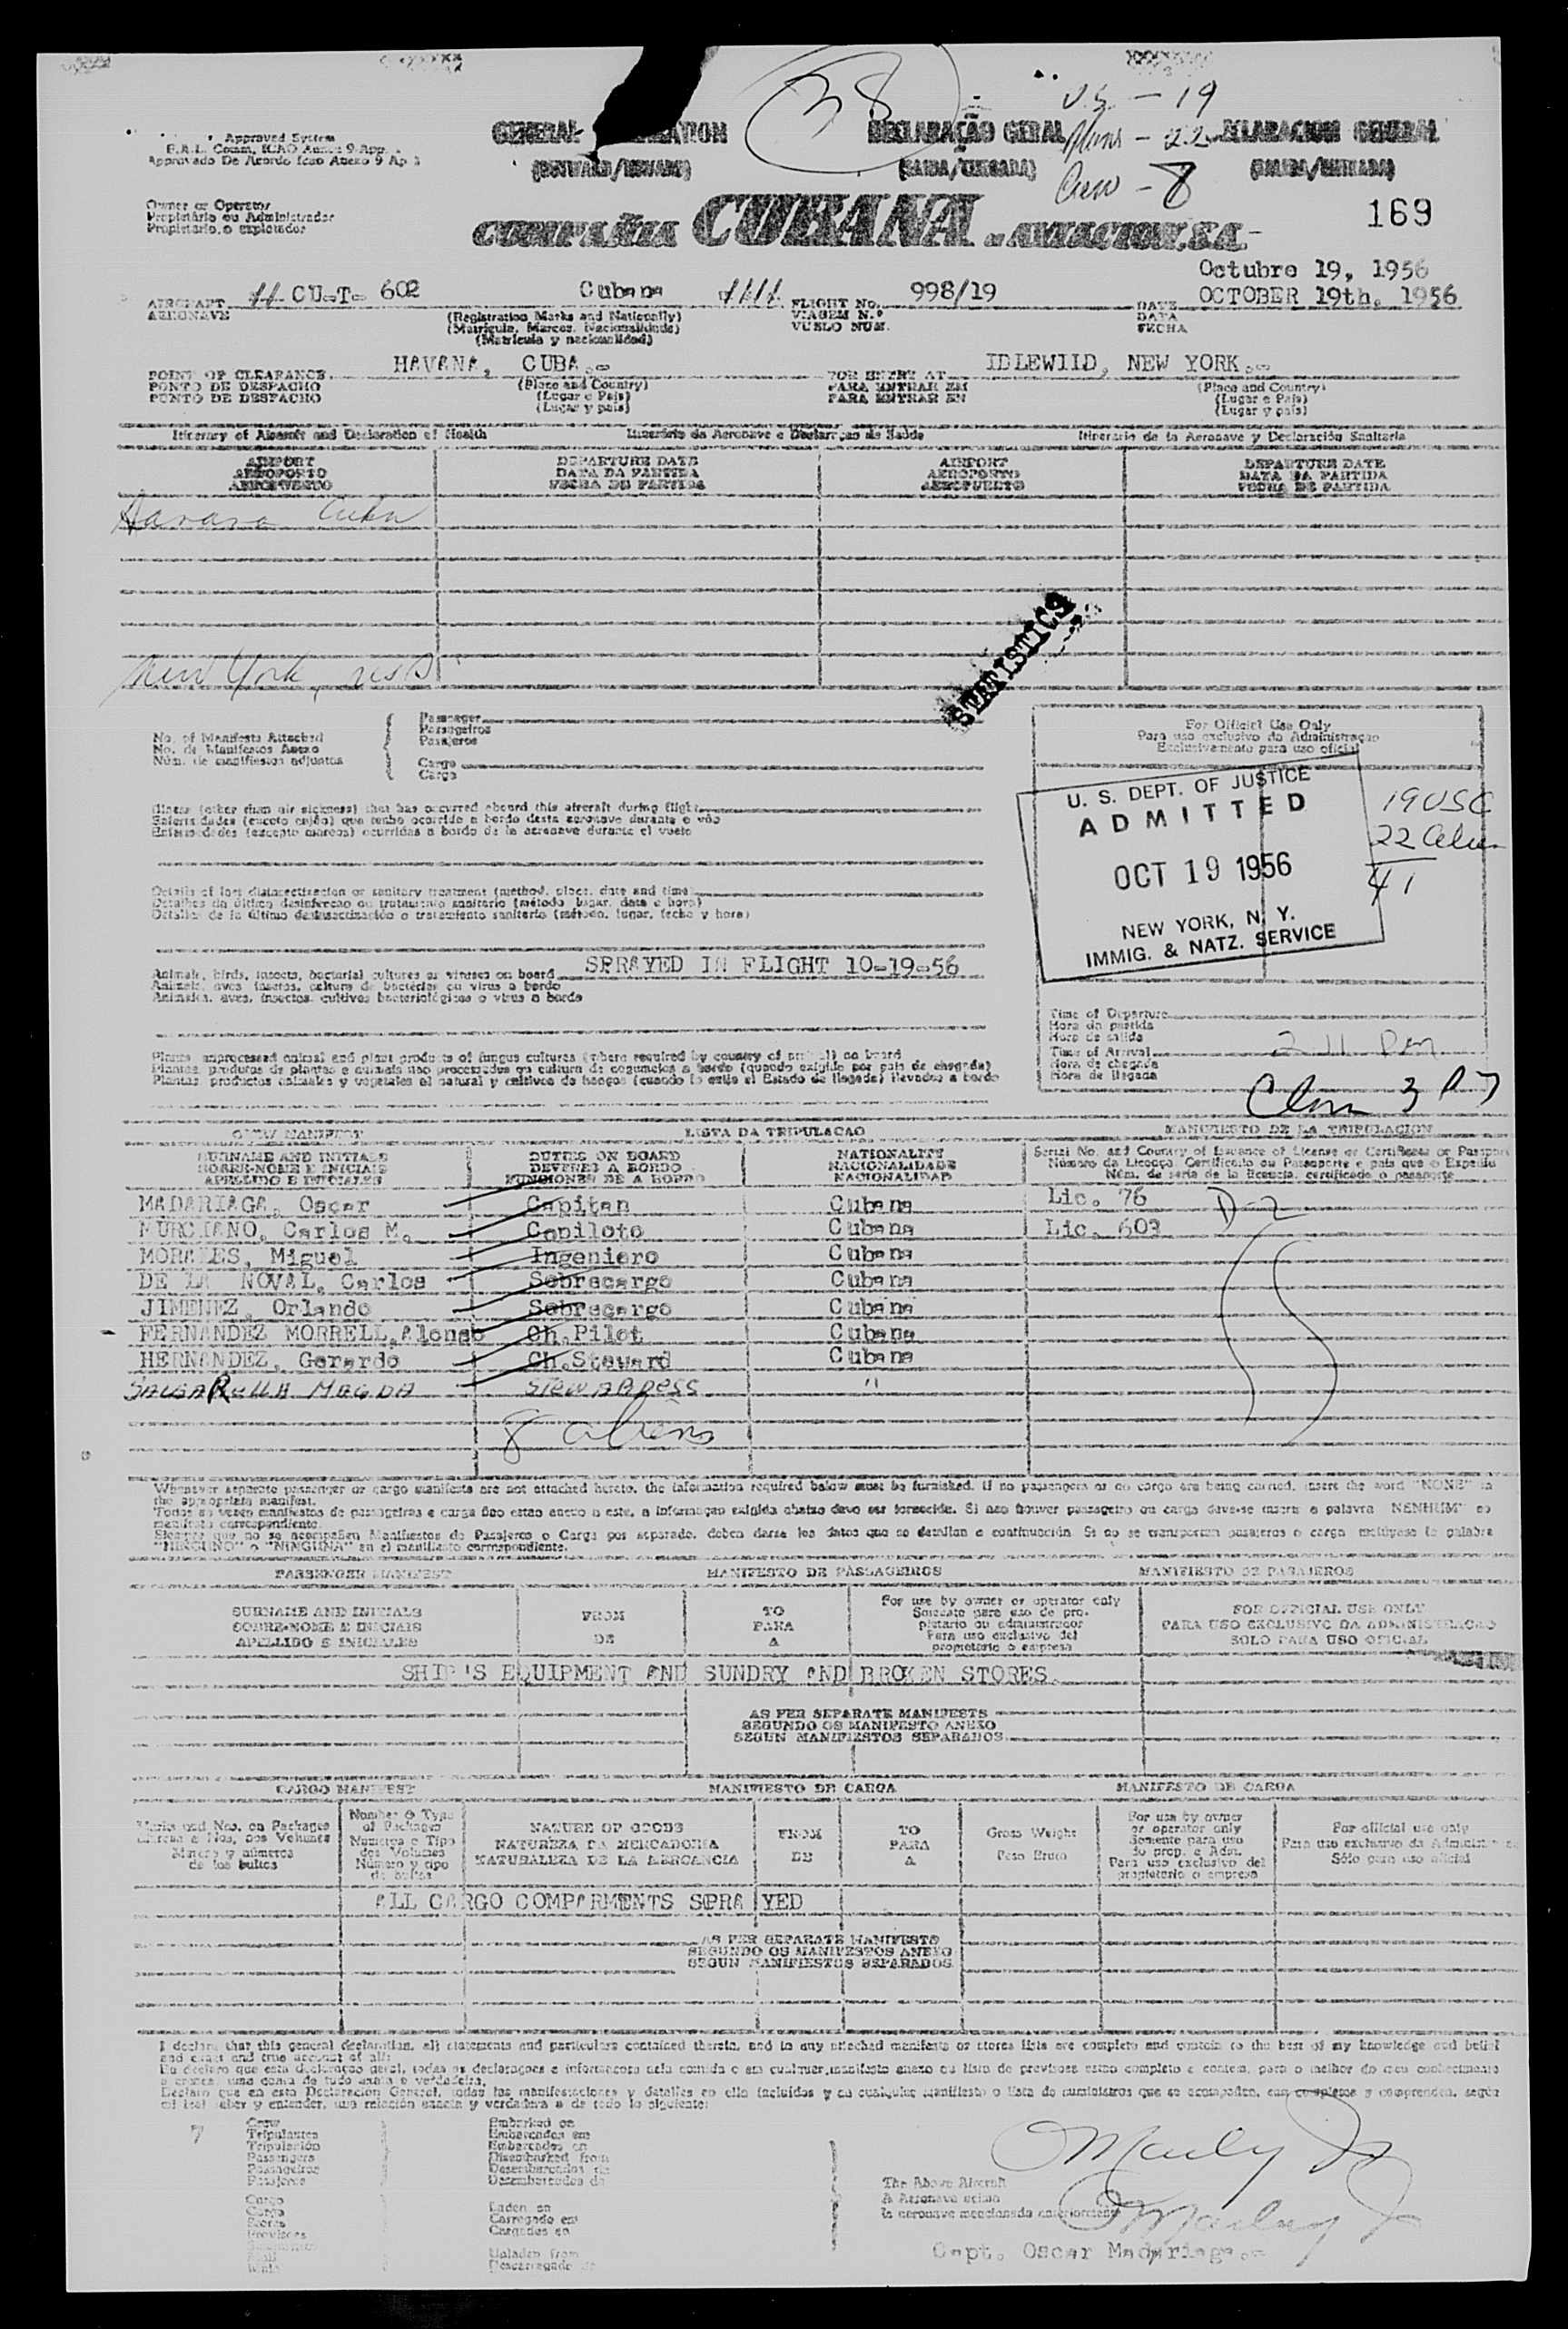 38
U.S. - 19
Aliens - 22
Crew - 8
Approved System
Aprovado De Acordo Icao Anexo 9 Ap
GENERAL DECLARATION DECLARAÇÃO GERAL DECLARACION GENERAL
(OUTWARD/INWARD) (SAIDA/CHEGADA) (SALIDA/ENTRADA)
Owner or Operator
Propietário ou Administrador
Propietario o explotador
COMPAÑIA CUBANA de AVIACION, S.A.
169
Octubre 19, 1956
AIRCRAFT CU-T- 602 Cubana FLIGHT No. 998/19 DATE OCTOBER 19th, 1956
AERONAVE (Registration Marks and Nationality) VIAGEM N.º DATA
(Matricula, Marcas, Nacionalidade) VUELO NUM. FECHA
(Matricula y nacionalidad)
POINT OF CLEARANCE HAVANA, CUBA.- FOR ENTRY AT IDLEWIID, NEW YORK.-
PONTO DE DESPACHO (Place and Country) PARA ENTRAR EM (Place and Country)
PUNTO DE DESPACHO (Lugar e Pais) PARA ENTRAR EN (Lugar e Pais)
(Lugar y pais) (Lugar y pais)
Itinerary of Aircraft and Declaration of Health Itinerário da Aeronave e Declaraçao de Saúde Itinerario de la Aeronave y Declaración Sanitaria
AIRPORT DEPARTURE DATE AIRPORT DEPARTURE DATE
AEROPORTO DATA DA PARTIDA AEROPORTO DATA DA PARTIDA
AEROPUERTO FECHA DE PARTIDA AEROPUERTO FECHA DE PARTIDA
Havana Cuba
New York, USA
STATISTICS
No. of Manifests Attached
No. de Manifestos Anexo
Núm. de manifiestos adjuntos
Passenger
Passageiros
Pasajeros
Cargo
Carga
For Official Use Only
Para uso exclusivo da Administraçao
Exclusivamente para uso oficial
U. S. DEPT. OF JUSTICE
ADMITTED
OCT 19 1956
NEW YORK, N. Y.
IMMIG. & NATZ. SERVICE
19 USC
22 Alien
41
Illness (other than air sickness) that has occurred aboard this aircraft during flight
Enfermedades (excepto mareos) ocurridas a bordo de la aeronave durante el vuelo
Details of last disinsectization or sanitary treatment (method, place, date and time)
Detalhes da última desinfeccao ou tratamento sanitario (método, lugar, data e hora)
Detalles de la última desinsectización o tratamiento sanitario (método, lugar, fecha y hora)
SPRAYED IN FLIGHT 10-19-56
Animals, birds, insects, bacterial cultures or viruses on board
Animais, aves insetos, cultura de bactérias ou virus a bordo
Animales, aves, insectos, cultivos bacteriológicos o virus a bordo
Time of Departure
Hora da partida
Hora de salida
Time of Arrival 2 11 Pm
Hora de chegada
Hora de llegada
Plants, unprocessed animal and plant products of fungus cultures (where required by country of arrival) on board
Plantas, produtos de plantas e animais nao processados ou cultura de cogumelos a bordo (quando exigido por pais de chegada)
Plantas, productos animales y vegetales al natural y cultivos de hongos (cuando lo exija el Estado de llegada) llevados a bordo
CREW MANIFEST LISTA DA TRIPULACAO MANIFIESTO DE LA TRIPULACION
SURNAME AND INITIALS DUTIES ON BOARD NATIONALITY Serial No. and Country of Issuance of License or Certificate or Passport
SOBRE-NOME E INICIAIS DEVERES A BORDO NACIONALIDADE Número da Licença, Certificado ou Passaporte e pais que o Expediu
APELLIDO E INICIALES FUNCIONES DE A BORDO NACIONALIDAD Núm. de serie de la licencia, certificado o pasaporte
MADARIAGA, Oscar Capitan Cubana Lic. 76 D-2
MURCIANO, Carlos M. Copiloto Cubana Lic. 603
MORALES, Miguel Ingeniero Cubana
DE LA NOVAL, Carlos Sobrecargo Cubana
JIMENEZ, Orlando Sobrecargo Cubana
FERNANDEZ MORRELL, Alonso Ch.Pilot Cubana
HERNANDEZ, Gerardo Ch.Steward Cubana
MAGDA STEWARDESS "
8 aliens
Whenever separate passenger or cargo manifests are not attached hereto, the information required below must be furnished. If no passengers or no cargo are being carried, insert the word "NONE" in
the appropriate manifest.
Siempre que no se acompañen Manifiestos de Pasajeros o Carga por separado, deben darse los datos que se detallan a continuación. Si no se transportan pasajeros o carga inclúyase la palabra
"NINGUNO" o "NINGUNA" en el manifiesto correspondiente.
PASSENGER MANIFEST MANIFESTO DE PASSAGEIROS MANIFIESTO DE PASAJEROS
SURNAME AND INITIALS FROM TO For use by owner or operator only FOR OFFICIAL USE ONLY
SOBRE-NOME E INICIAIS DE PARA Somente para uso de pro- PARA USO EXCLUSIVO DA ADMINISTRACAO
APELLIDO E INICIALES A pietario ou administrador SOLO PARA USO OFICIAL
Para uso exclusivo del
propietario o empresa
SHIP'S EQUIPMENT AND SUNDRY AND BROKEN STORES.
AS PER SEPARATE MANIFESTS
SEGUNDO OS MANIFESTO ANEXO
SEGUN MANIFIESTOS SEPARADOS
CARGO MANIFEST MANIFIESTO DE CARGA MANIFESTO DE CARGA
Marks and Nos. on Packages Number & Type of Packages NATURE OF GOODS FROM TO Gross Weight For use by owner or operator only For official use only
Marca e Nos. dos Volumes Numeros e Tipo dos Volumes NATUREZA DA MERCADORIA DE PARA Peso Bruto Somente para uso do prop. e Adm.
Marcas y números de los bultos Número y tipo de bultos NATURALEZA DE LA MERCANCIA A Para uso exclusivo del propietario o empresa Sólo para uso oficial
ALL CARGO COMPARMENTS SPRAYED
AS PER SEPARATE MANIFESTS
SEGUNDO OS MANIFESTOS ANEXO
SEGUN MANIFIESTOS SEPARADOS
I declare that this general declaration, all statements and particulars contained therein, and in any attached manifests or stores lists are complete and contain to the best of my knowledge and belief
and exact and true account of all:
Declaro que en esta Declaración General, todas las manifestaciones y detalles en ella incluidos y en cualquier manifiesto o lista de suministros que se acompañen, son completos y comprenden, según
mi leal saber y entender, una relación exacta y verdadera a de todo lo siguiente:
7 Crew Embarked on
Tripulantes Embarcados em
Tripulación Embarcados en
Passengers Disembarked from
Passageiros Desembarcados de
Pasajeros Desembarcados de
Cargo Laden on
Carga Carregado em
Stores Cargados en
Unladen from
Descarregado de
The Above Aircraft
A Aeronave acima
la aeronave mencionada anteriormente
Capt. Oscar Madariaga.-